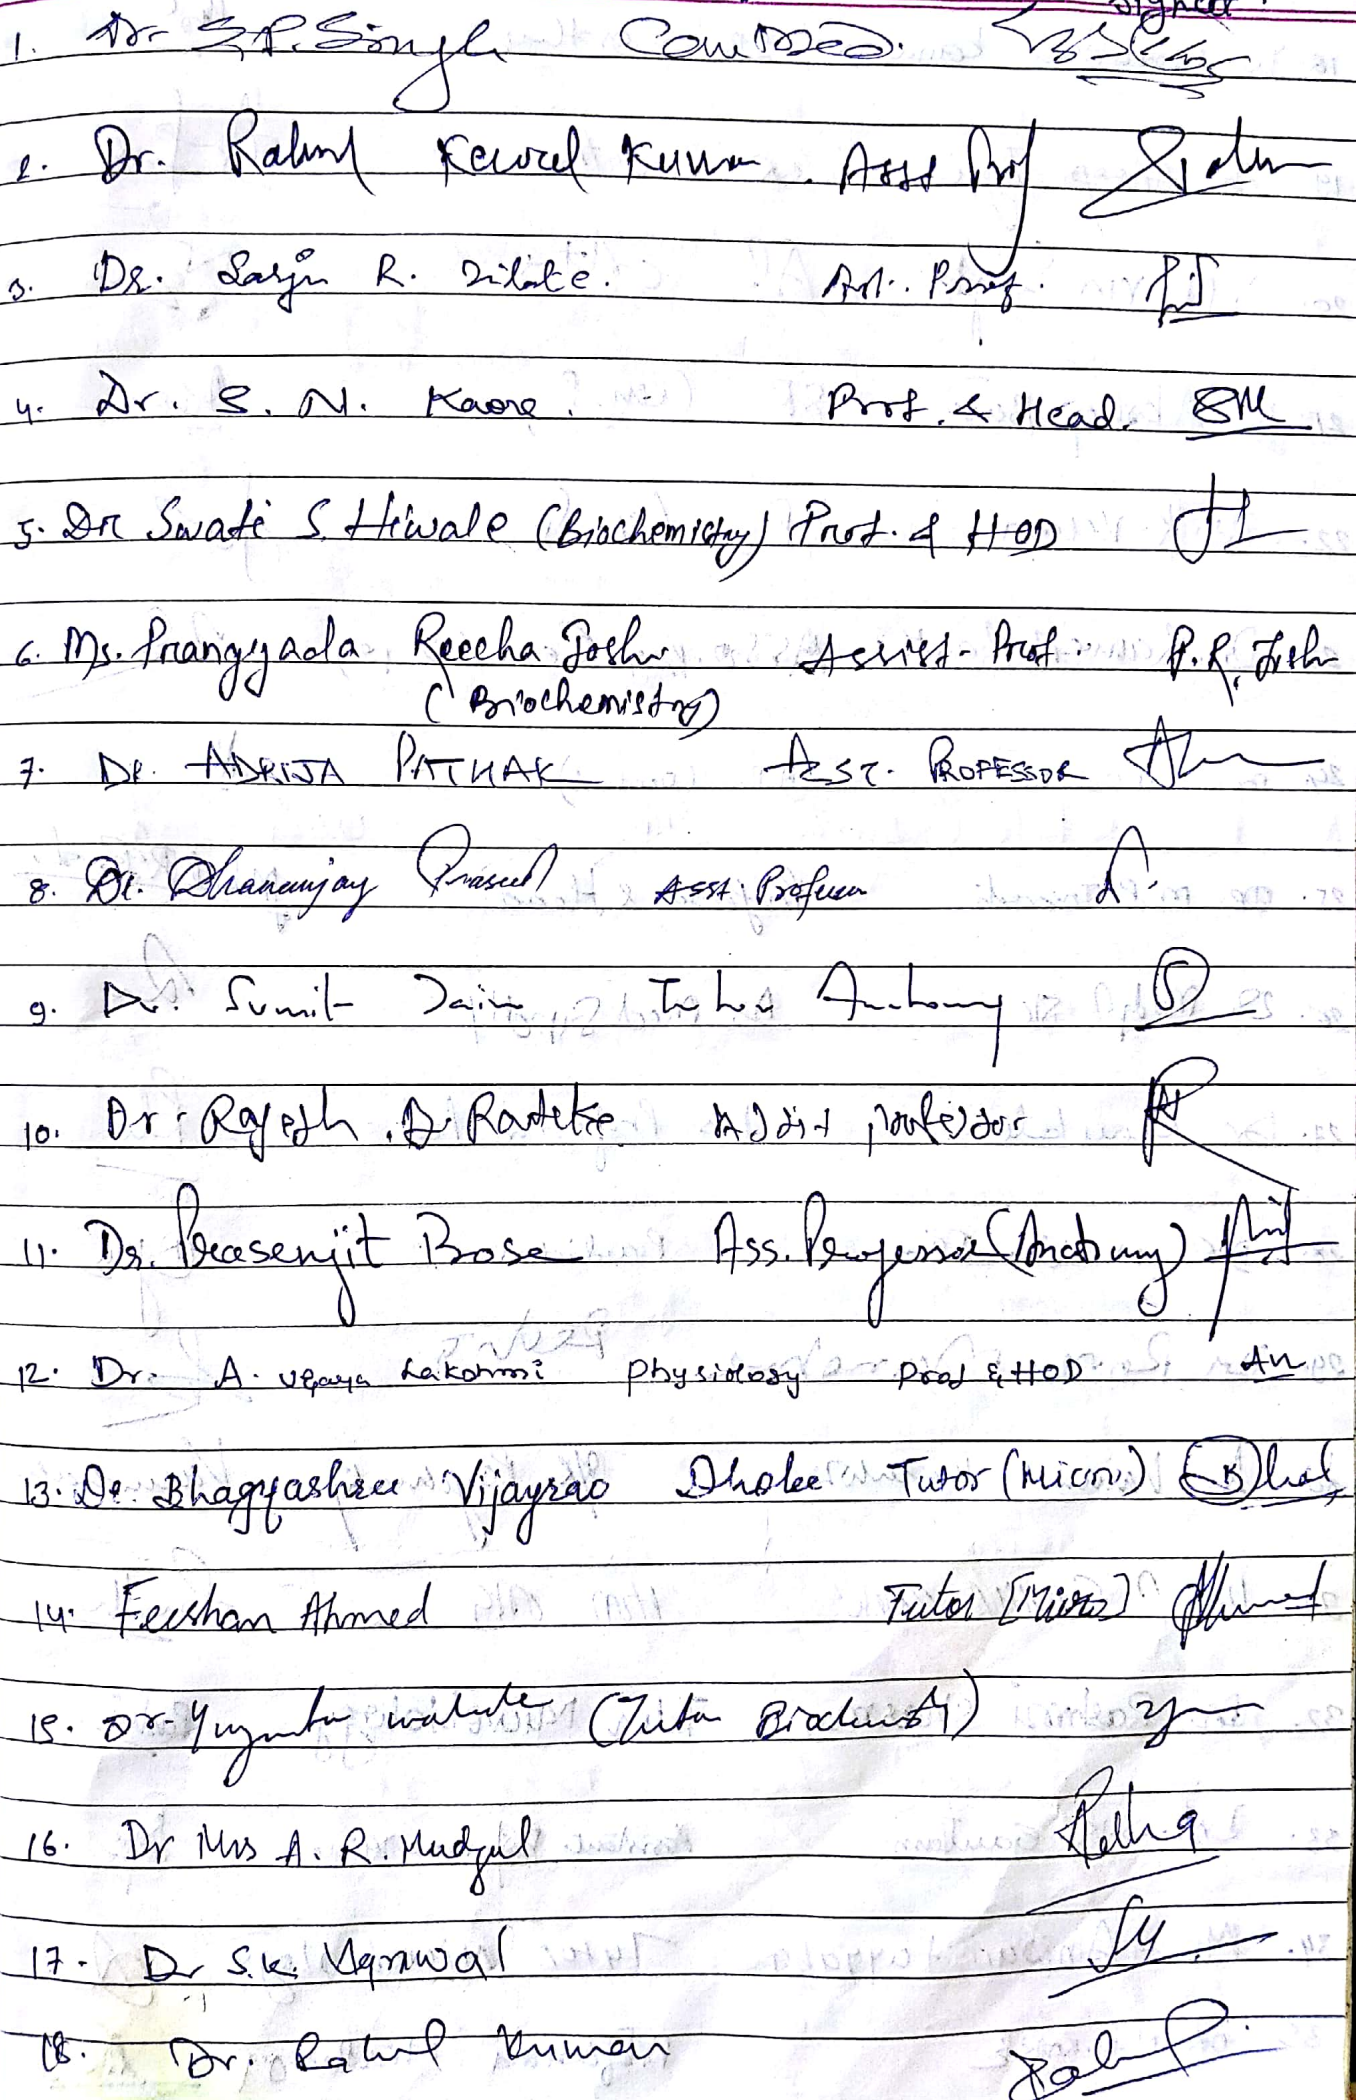 1. Dr. S.P. Singh Com Med.
2. Dr. Rahul Kewal Kumar. Asst Prof
3. Dr. Sarju R. Zilate. Ast. Prof.
4. Dr. S. N. Kaore. Prof. & Head.
5. Dr Swati S. Hiwale (Biochemistry) Prof. & HOD
6. Ms. Prangyada Reecha Joshi Assist. Prof. P.R. Joshi
(Biochemistry)
7. DR. ADRIJA PATHAK ASST. PROFESSOR
8. Dr. Dhananjay Prasad Asst. Professor
9. Dr. Sumit Jain Tutor Anatomy
10. Dr. Rajesh . D. Rauteke Addit professor
11. Dr. Prasenjit Bose Ass. Professor (Anatomy)
12. Dr. A. Vijaya Lakshmi Physiology Prof & HOD
13. Dr. Bhagyashree Vijayrao Dhoke Tutor (Micro)
14. Feeshan Ahmed Tutor [Micro]
15. Dr. (Tutor Biochemistry)
16. Dr Mrs A. R. Mudgal
17. Dr S.K. Agrawal
18. Dr. Rahul Kumar